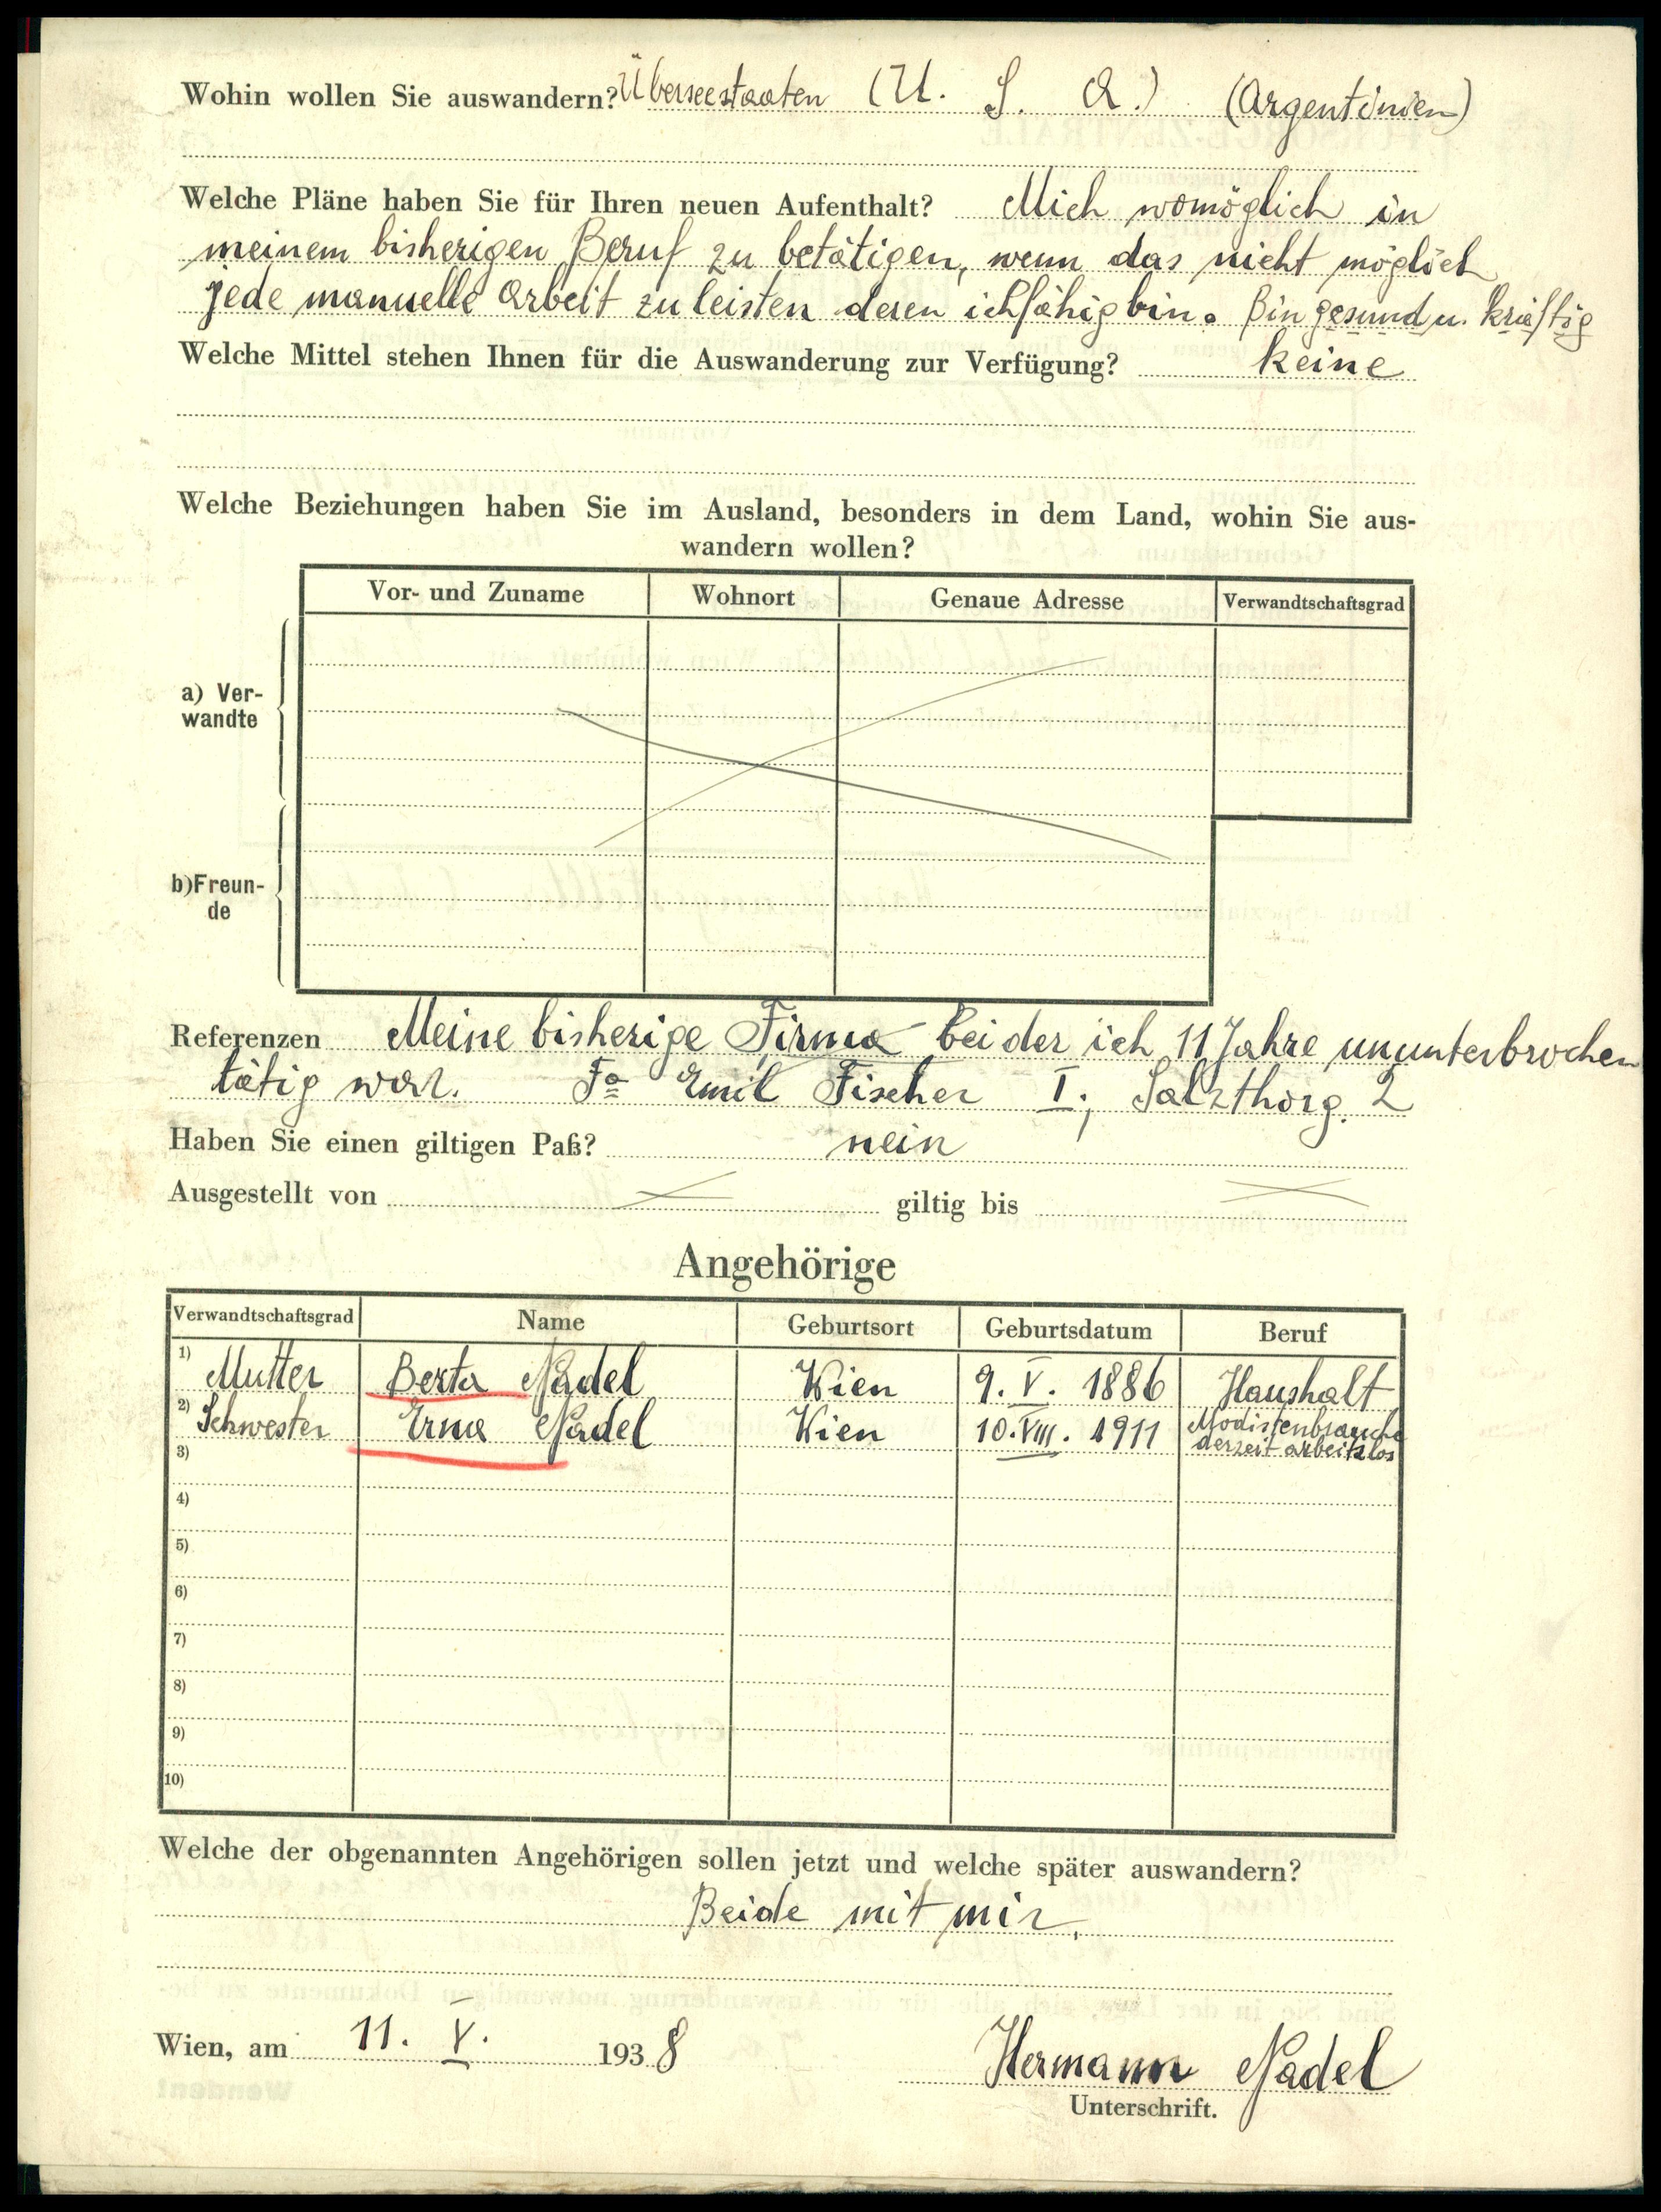 Wohin wollen Sie auswandern? Überseestaaten (U. S. A.) (Argentinien)
Welche Pläne haben Sie für Ihren neuen Aufenthalt? Mich womöglich in
meinem bisherigen Beruf zu betätigen, wenn das nicht möglich
jede manuelle Arbeit zu leisten deren ich fähig bin. Bin gesund u. kräftig
Welche Mittel stehen Ihnen für die Auswanderung zur Verfügung? keine
Welche Beziehungen haben Sie im Ausland, besonders in dem Land, wohin Sie aus-
wandern wollen?
Vor- und Zuname Wohnort Genaue Adresse Verwandtschaftsgrad
a) Ver-
wandte
b) Freun-
de
Referenzen Meine bisherige Firma bei der ich 11 Jahre ununterbrochen
tätig war. Fa Emil Fischer I., Salzthorg. 2
Haben Sie einen giltigen Paß? nein
Ausgestellt von giltig bis
Angehörige
Verwandtschaftsgrad Name Geburtsort Geburtsdatum Beruf
1) Mutter Berta Nadel Wien 9. V. 1886 Haushalt
2) Schwester Erna Nadel Wien 10. VIII. 1911 Modistenbranche
derzeit arbeitslos
3)
4)
5)
6)
7)
8)
9)
10)
Welche der obgenannten Angehörigen sollen jetzt und welche später auswandern?
Beide mit mir.
Wien, am 11. V. 1938 Hermann Nadel
Unterschrift.